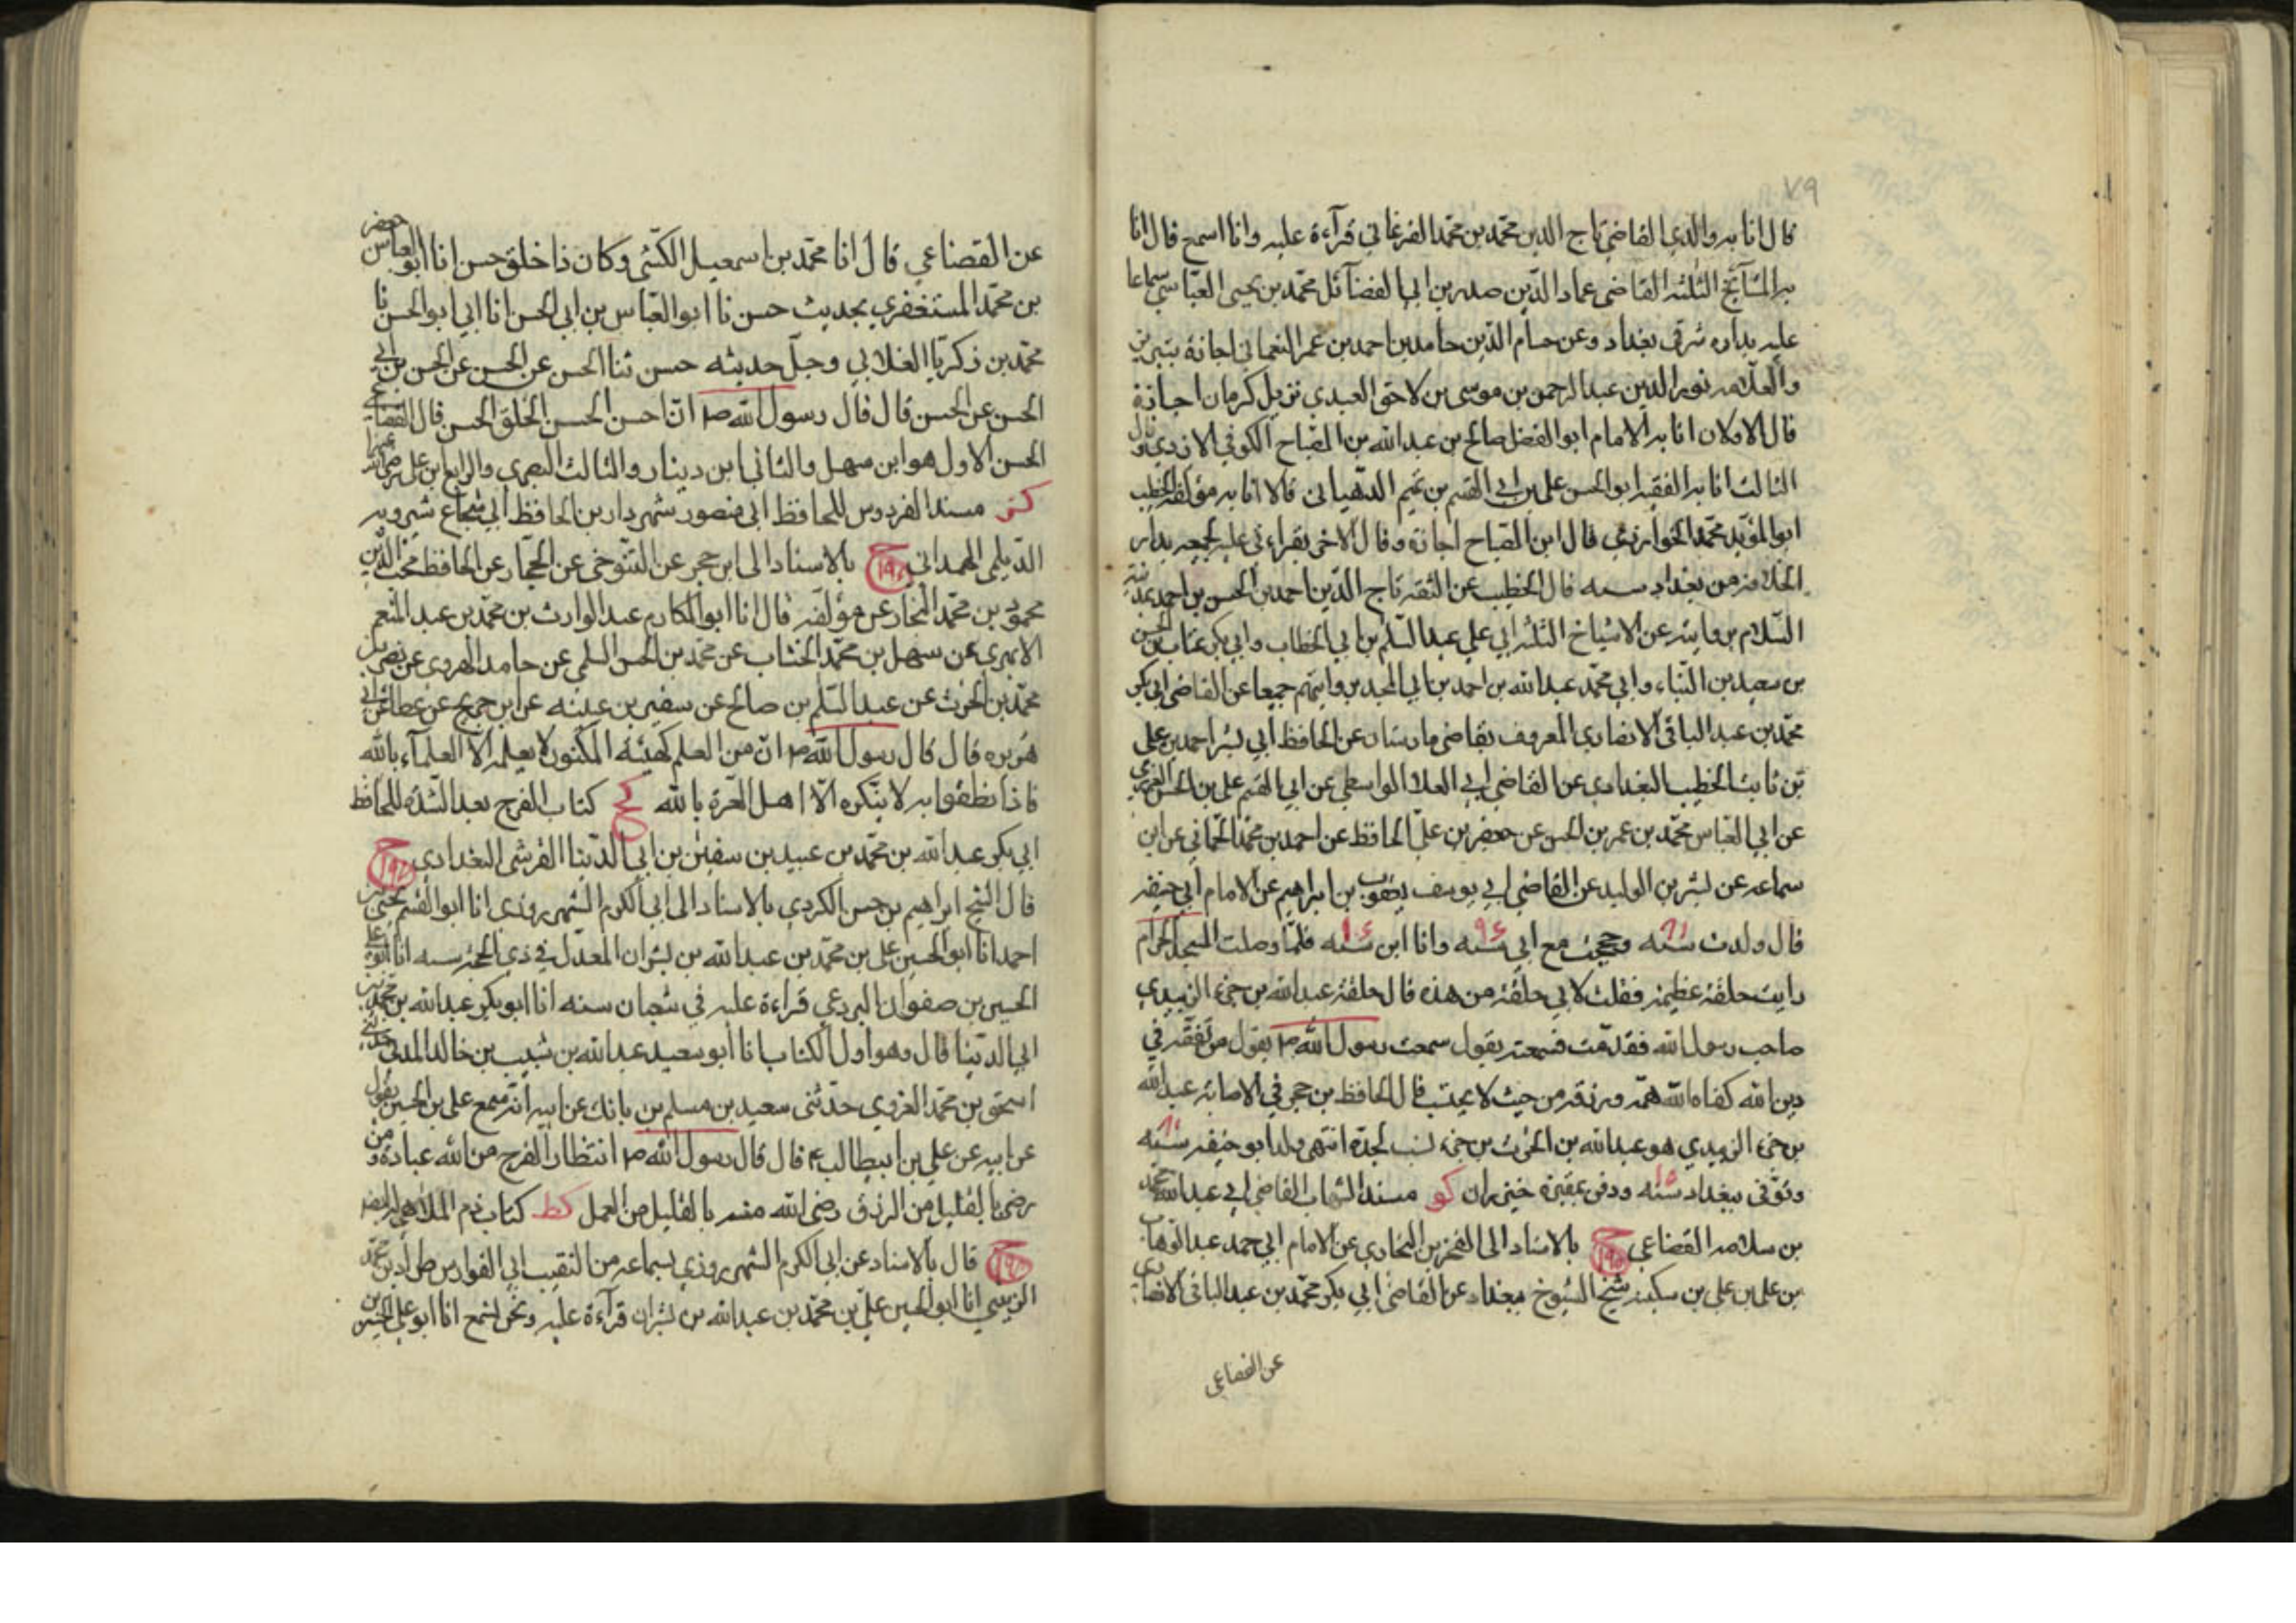 ٧٩
قال انا به والدي القاضي تاج الدين محمد بن محمد الفرغاني قرآءة عليه وانا اسمع قال انا
به المشآئخ الثلثه القاضى عماد الدين صدر بن ابي الفضآئل محمد بن يحيى العباسي سماعا
عليه بداره شرقى بغداد وعن حسام الدين حامد بن احمد بن عمر النعمانى اجازة بتبريز
والعلامه نور الدين عبد الرحمن بن موسى بن لاحق العبدي نزيل كرمان اجازة
قال الاولان انا به الامام ابو الفضل صالح بن عبد الله بن الصباح الكوفي الازدي وقال
الثالث انا به الفقيه ابو الحسن علي بن ابي القسم بن تميم الدهيانى قالا انا به مؤلفه الخطيب
ابو المؤيد محمد الخوارزمى قال ابن الصباح اجازة وقال الاخر بقراءتى عليه لجميعه بدار
الخلافه من بغداد سنه قال الخطيب عن الثقه تاج الدين احمد بن الحسن بن احمد
السلام بن عن الاشياخ الثلثه ابي علي عبد السلم بن ابي الخطاب وابي بكر عتاب بن الحسن
بن سعيد بن البناء وابي محمد عبد الله بن احمد بن ابي المجد بن جميعا عن القاضى ابى بكر
محمد بن عبد الباقى الانصاري المعروف بقاضى مارستان عن الحافظ ابي بشر احمد بن على
بن ثابت الخطيب البغدادي عن القاضي ابي العلا الواسطي عن ابي القسم على بن الحسن
عن ابي العباس محمد بن عمر بن الحسن عن جعفر بن علي الحافظ عن احمد بن محمد الحماني عن ابن
سماعه عن بشر بن الوليد عن القاضي ابي يوسف يعقوب بن ابراهيم عن الامام ابي حنيفه
قال ولدت سنه وحججت مع ابي سنه ٩٤ وانا ابن سنه فلما وصلت المسجد الحرام
رايت حلقة عظيمة فقلت لابي حلقة من هذه قال حلقة عبد الله بن جزء الزبيدي
صاحب رسول الله فقدمت فسمعته يقول سمعت رسول الله ص يقول من تفقه في
دين الله كفاه الله همه ورزقه من حيث لا يحتسب قال الحافظ بن حجر في الاصابه عبد الله
بن جزء الزبيدي هو عبد الله بن الحرث بن جزء نسب لجده انتهى ولد ابو حنيفه سنه
وتوفى ببغداد سنه ودفن بمقبرة خيزران كو مسند الشهاب القاضى ابي عبد الله محمد
بن سلامه القضاعي بالاسناد الى الفخر بن البخاري عن الامام ابي احمد عبد الوهاب
بن على بن علي بن سكينه شيخ الشيوخ ببغداد عن القاضى ابي بكر محمد بن عبد الباقى الانصاري
عن القضاعى
عن القضاعي قال انا محمد بن اسمعيل الكشى وكان ذا خلق حسن انا ابو العباس جعفر
بن محمد المستغفري بحديث حسن نا ابو العباس بن ابي الحسن انا ابي ابو الحسن نا
محمد بن زكريا الغلابي وجل حديثه حسن ثنا الحسن عن الحسن عن الحسن بن ابي
الحسن عن الحسن قال قال رسول الله ص ان احسن الحسن الخلق الحسن قال القضاعي
الحسن الاول هو ابن سهل والثانى ابن دينار والثالث البصري والرابع ابن على
كز مسند الفردوس للحافظ ابى منصور شهردار بن الحافظ ابي شجاع شيرويه
الديلمى الهمدانى بالاسناد الى ابن حجر عن التنوخى عن الحجار عن الحافظ محب الدين
محمود بن محمد النجار عن مؤلفه قال انا ابو المكارم عبد الوارث بن محمد بن عبد المنعم
الابهري عن سهل بن محمد الخشاب عن محمد بن الحسن السلمى عن حامد الهروى عن نصر بن
محمد بن الحرث عن عبد السلم بن صالح عن سفين بن عينه عن ابن جريج عن عطا عن ابي
هريره قال قال رسول الله ص ان من العلم كهيئه المكنون لا يعلمه الا العلمآء بالله
فاذا نطقوا به لا ينكره الا اهل الغرة بالله كح كتاب الفرج بعد الشده للحافظ
ابي بكر عبد الله بن محمد بن عبيد بن سفين بن ابي الدنيا القرشى البغدادي
قال الشيخ ابراهيم بن حسن الكردي بالاسناد الى ابي الكرم الشهرزوري انا ابو القسم يحيى بن
احمد انا ابو الحسين على بن محمد بن عبد الله بن بشران المعدل في ذي الحجه سنه انا ابو علي
الحسين بن صفوان البردعي قراءة عليه في شعبان سنه انا ابو بكر عبد الله بن محمد بن
ابي الدنيا قال وهو اول الكتاب انا ابو سعيد عبد الله بن شبيب بن خالد المدني حدثني
اسحق بن محمد الفروي حدثنى سعيد بن مسلم بن بانك عن ابيه انه سمع على بن الحسين يقول
عن ابيه عن علي بن ابيطالب ع قال قال رسول الله ص انتظار الفرج من الله عبادة ومن
رضى بالقليل من الرزق رضى الله منه بالقليل من العمل كط كتاب ذم الملاهى له ايضا
قال بالاسناد عن ابي الكرم الشهرزوري بسماعه من النقيب ابي الفوارس طراد بن محمد
الزينبي انا ابو الحسين علي بن محمد بن عبد الله بن بشران قرآءة عليه ونحن نسمع انا ابو علي الحسين بن